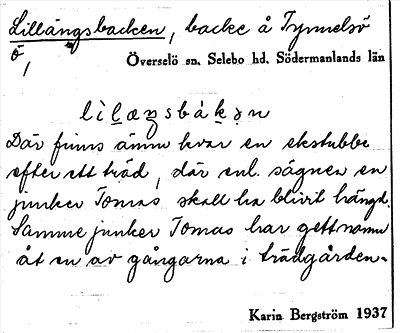 Lillängsbacken, backe å Tynnelsö
ö,
Överselö sn. Selebo hd. Södermanlands län
lìlæŋsbákən
Där finns ännu kvar en ekstubbe
efter ett träd, där enl. sägnen en
junker Tomas skall ha blivit hängd.
Samme junker Tomas har gett namn
åt en av gångarna i trädgården.
Karin Bergström 1937